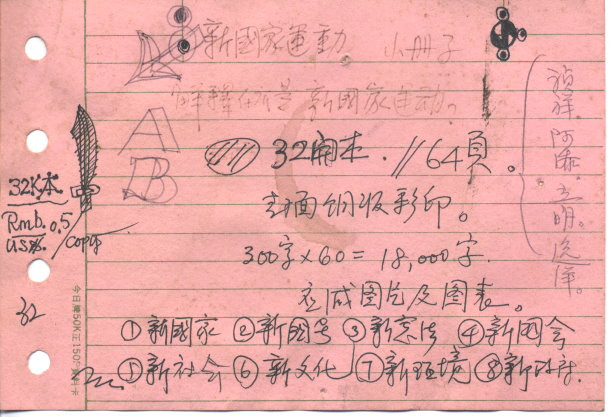 新國家運動 小册子
解釋什么是新國家运动。
A
B
32開本. // 64頁。
封面銅版彩印。
300字×60=18,000字.
左成图片及图表。
①新國家 ②新國号 ③新憲法 ④新國会
⑤新社会 ⑥新文化 ⑦新环境 ⑧新政府.
32K本
Rmb. 0.5
US%. /copy
32
阿泰. 立明.